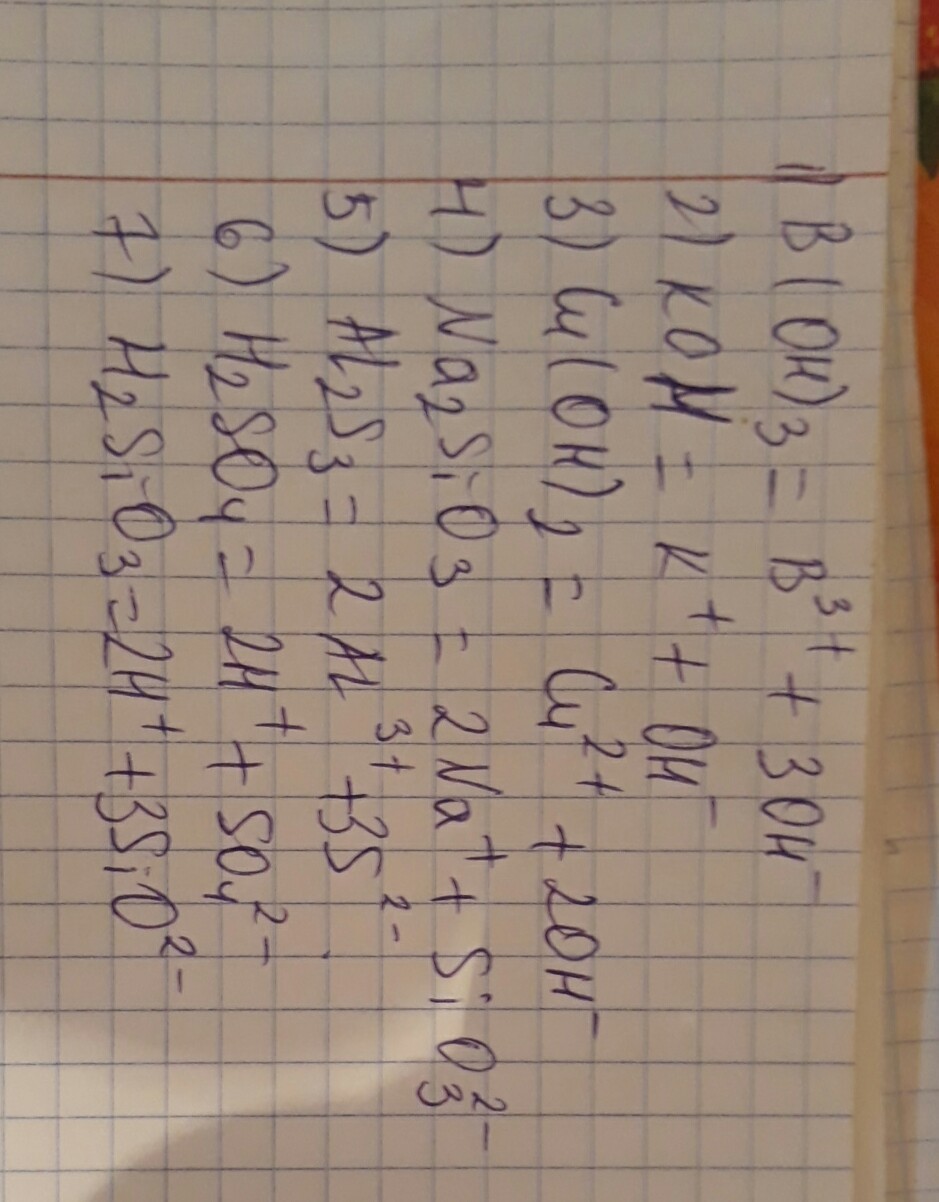 1) B(OH)3 = B³⁺ + 3OH⁻
2) KOH = K⁺ + OH⁻
3) Cu(OH)2 = Cu²⁺ + 2OH⁻
4) Na2SiO3 = 2Na⁺ + SiO3²⁻
5) Al2S3 = 2Al³⁺ + 3S²⁻
6) H2SO4 = 2H⁺ + SO4²⁻
7) H2SiO3 = 2H⁺ + 3SiO²⁻